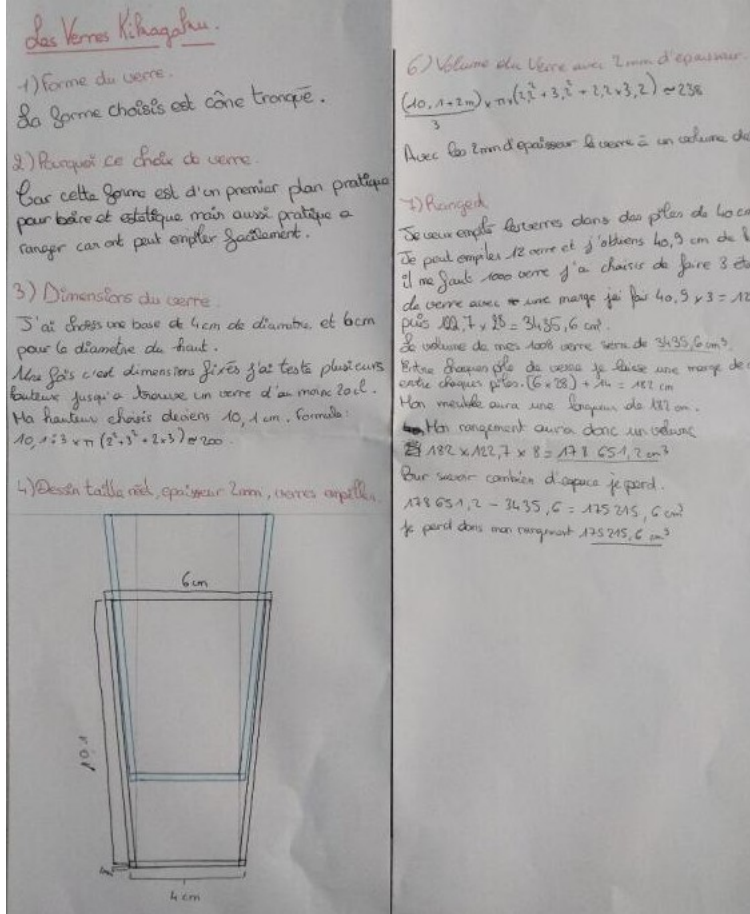 Les Verres Kikagaku.
1) Forme du verre.
La forme choisis est cône tronqué.
2) Pourquoi ce choix de verre.
Car cette forme est d'un premier plan pratique
pour boire et estetique mais aussi pratique a
ranger car ont peut empiler facilement.
3) Dimensions du verre.
J'ai choisis une base de 4cm de diametre et 6cm
pour le diametre du haut.
Une fois c'est dimensions fixés j'ai testé plusieurs
hauteur jusqu'a trouve un verre d'au moins 20cl.
Ma hauteur choisis deviens 10,1cm. Formule:
10,1:3 x π (2²+3²+2x3) ≈ 200.
4) Dessin taille réel, epaisseur 2mm, verres empiller.
6cm
10,1
4cm
6) Volume du Verre avec 2mm d'epaisseur.
(10,1+2m) x π x (2,2²+3,2²+2,2x3,2) ≈ 238
3
Avec les 2mm d'epaisseur le verre à un volume de
7) Ranged
Je veux empile les verres dans des piles de 40 cm
Je peut empiles 12 verre et j'obtiens 40,9 cm de
il me faut 1000 verre j'ai choisis de faire 3
de verre avec une marge jai fai 40,9 x 3 = 12
puis 122,7 x 28 = 3435,6 cm³.
Le volume de mes 1008 verre sera de 3435,6 cm³.
Entre chaques pile de verre je laisse une marge de
entre chaques piles. (6x28) + 14 = 182 cm
Mon meuble aura une longueur de 182 cm.
Mon rangement aura donc un volume
182 x 122,7 x 8 = 178 651,2 cm³
Pour savoir combien d'espace je perd.
178651,2 - 3435,6 = 175215,6 cm³
Je perd dans mon rangement 175215,6 cm³